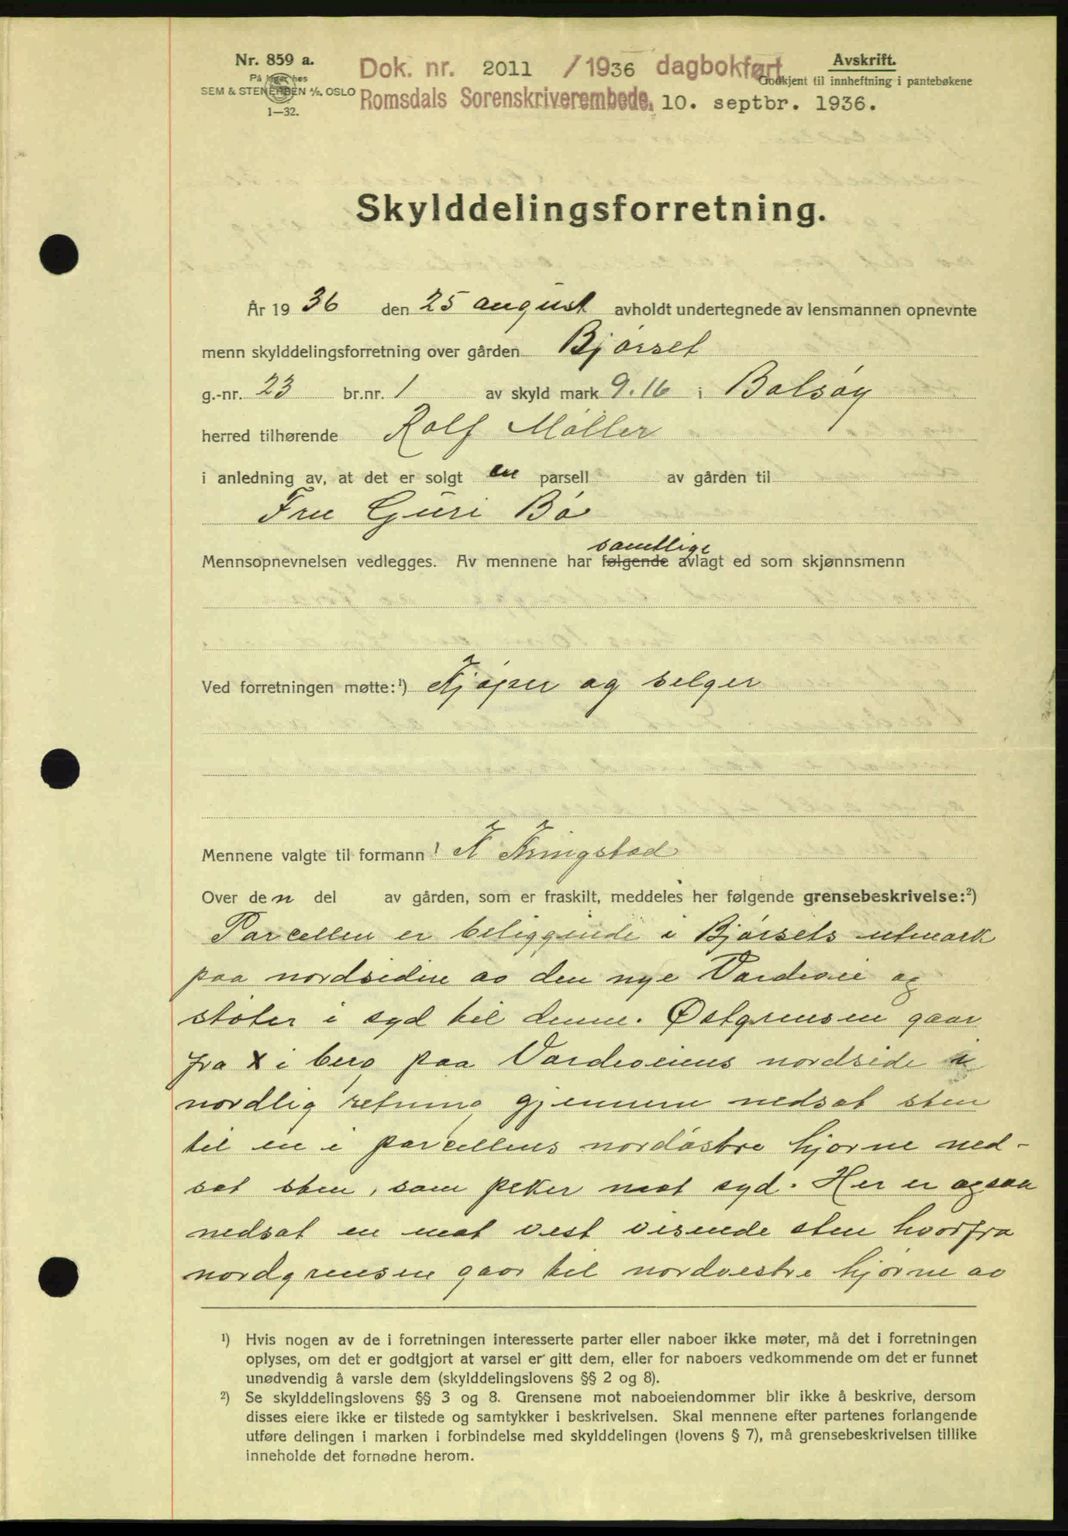 Nr. 859 a.
På lager hos
SEM & STENERSEN A/S, OSLO
1—32.
Dok. nr. 2011 / 1936 dagbokført
Romsdals Sorenskriverembede, 10. septbr. 1936.
Avskrift.
Godkjent til innheftning i pantebøkene
Skylddelingsforretning.
År 1936 den 25 august avholdt undertegnede av lensmannen opnevnte
menn skylddelingsforretning over gården Bjørset
g.-nr. 23 br.nr. 1 av skyld mark 9.16 i Bolsøy
herred tilhørende Rolf Møller
i anledning av, at det er solgt en parsell av gården til
Fru Guri Bø
samtlige
Mennsopnevnelsen vedlegges. Av mennene har følgende avlagt ed som skjønnsmenn
Ved forretningen møtte:¹) Kjøper og selger
Mennene valgte til formann K Kringstad
Over den del av gården, som er fraskilt, meddeles her følgende grensebeskrivelse:²)
Parcellen er beliggende i Bjørsets utmark
paa nordsiden av den nye Vardevei og
støter i syd til denne. Østgrensen gaar
fra X i berg paa Vardeveiens nordside i
nordlig retning gjennem nedsat sten
til en i parcellens nordøstre hjørne ned-
sat sten, som peker mot syd. Her er ogsaa
nedsat en mot vest visende sten hvorfra
nordgrensen gaar til nordvestre hjørne av
¹) Hvis nogen av de i forretningen interesserte parter eller naboer ikke møter, må det i forretningen
oplyses, om det er godtgjort at varsel er gitt dem, eller for naboers vedkommende om det er funnet
unødvendig å varsle dem (skylddelingslovens §§ 2 og 8).
²) Se skylddelingslovens §§ 3 og 8. Grensene mot naboeiendommer blir ikke å beskrive, dersom
disses eiere ikke er tilstede og samtykker i beskrivelsen. Skal mennene efter partenes forlangende
utføre delingen i marken i forbindelse med skylddelingen (lovens § 7), må grensebeskrivelsen tillike
inneholde det fornødne herom.